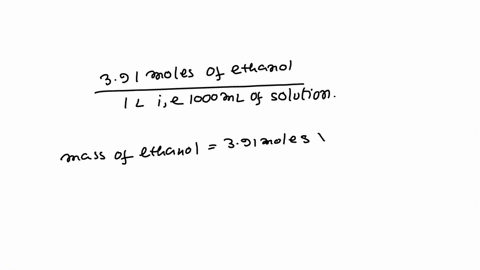 3.91 moles of ethanol
1L i,e 1000mL of solution.
mass of ethanol = 3.91 moles \